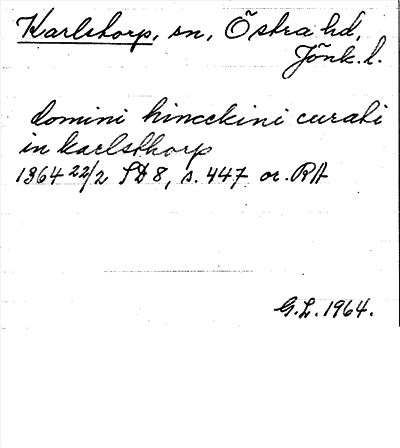 Karlstorp, sn, Östra hd,
Jönk. l.
domini hincekini curati
in karlsthorp
1364 22/2 SD 8, s. 447 or. RA
G.L. 1964.